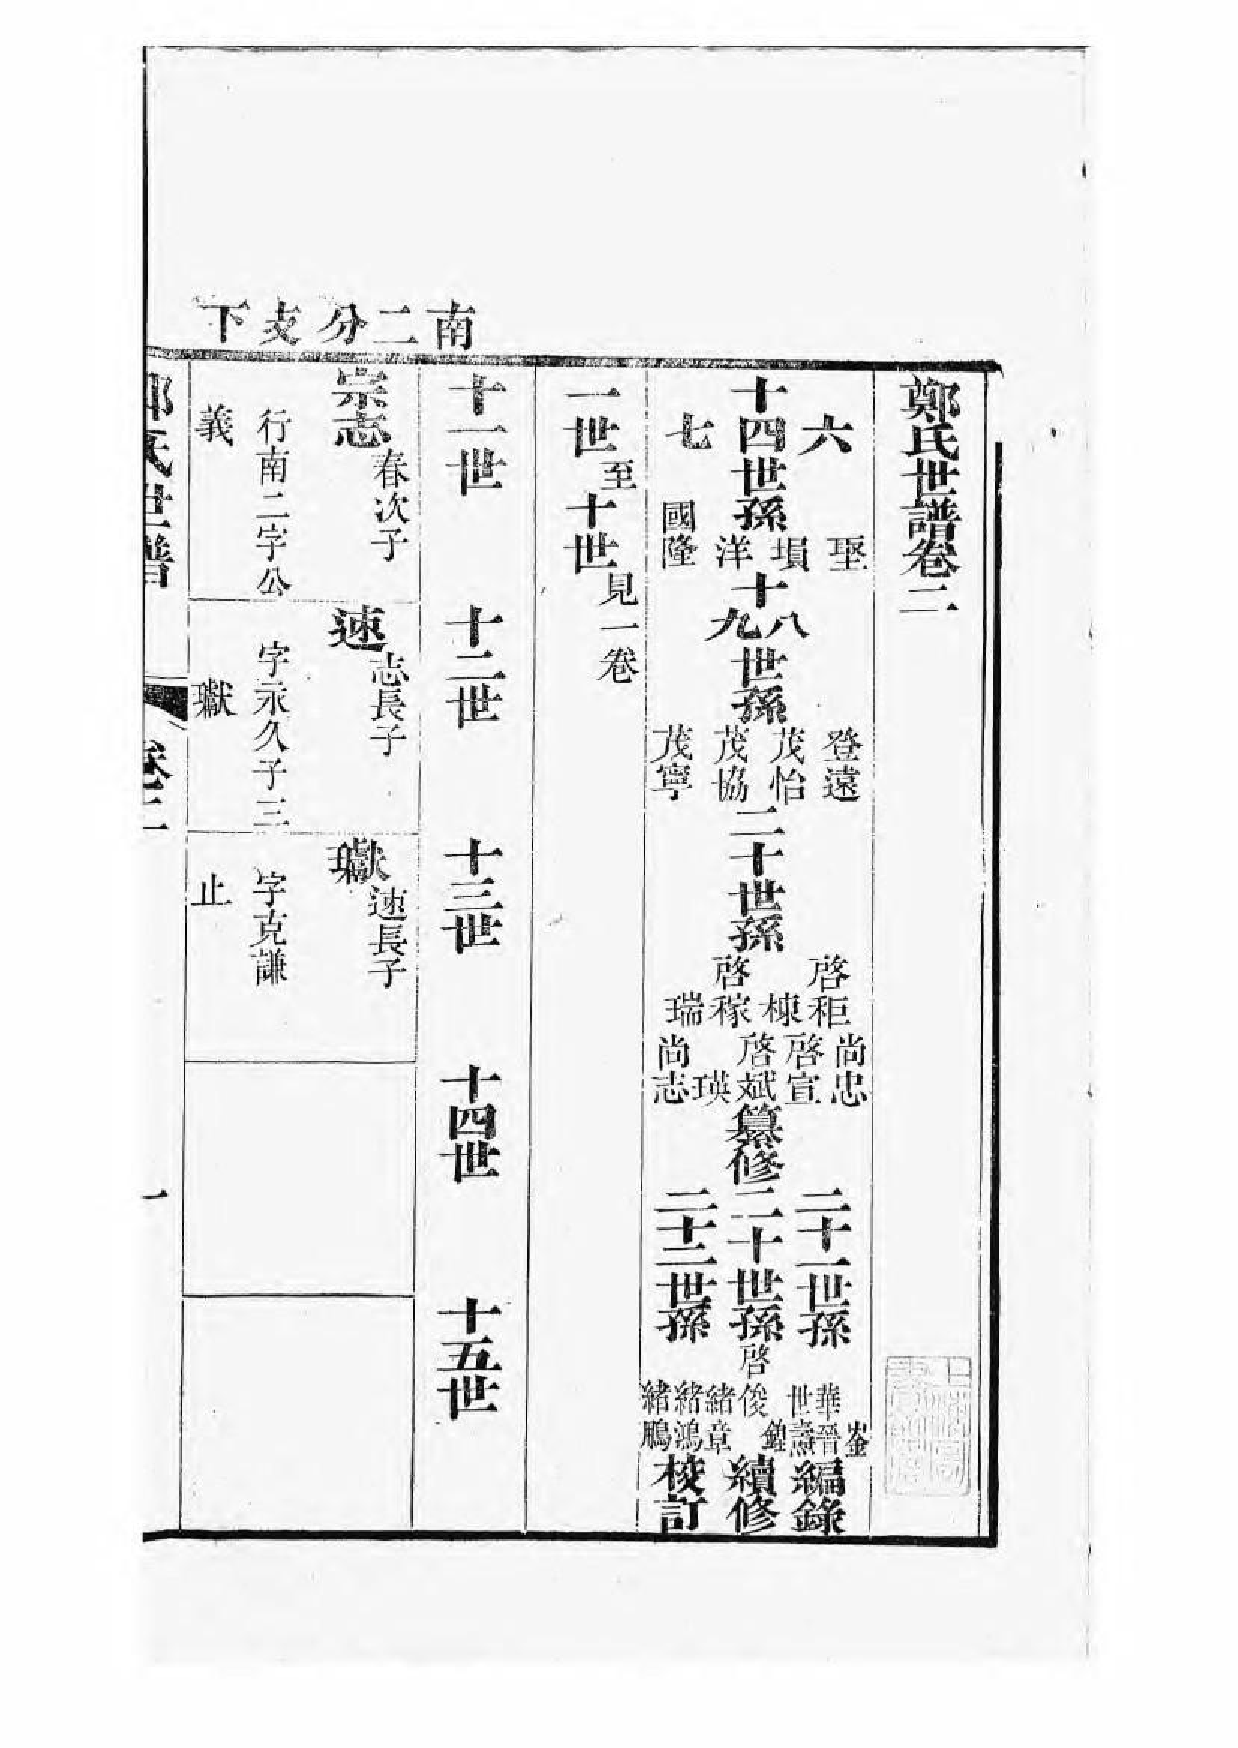 南二分支下
鄭氏世譜卷二
十四六七世孫 聖 塤 洋 國隆 十八九世孫 登遠 茂怡 茂協 茂寧 二十世孫 啓秬 棟 啓稼 瑞 尚忠 啓宣 啓斌 瑛 尚志 纂修
二十一世孫 崟 華晉 世燾 編錄
二十世孫 啓俊 續修
二十二世孫 緒章 緒鴻 緒鵬 校訂
一世至十世見一卷
十一世 十二世 十三世 十四世 十五世
宗志 春次子
行南二字公
義
速 志長子
字永久子三
瓛
瓛 速長子
字克謙
止
鄭氏世譜 卷二 一